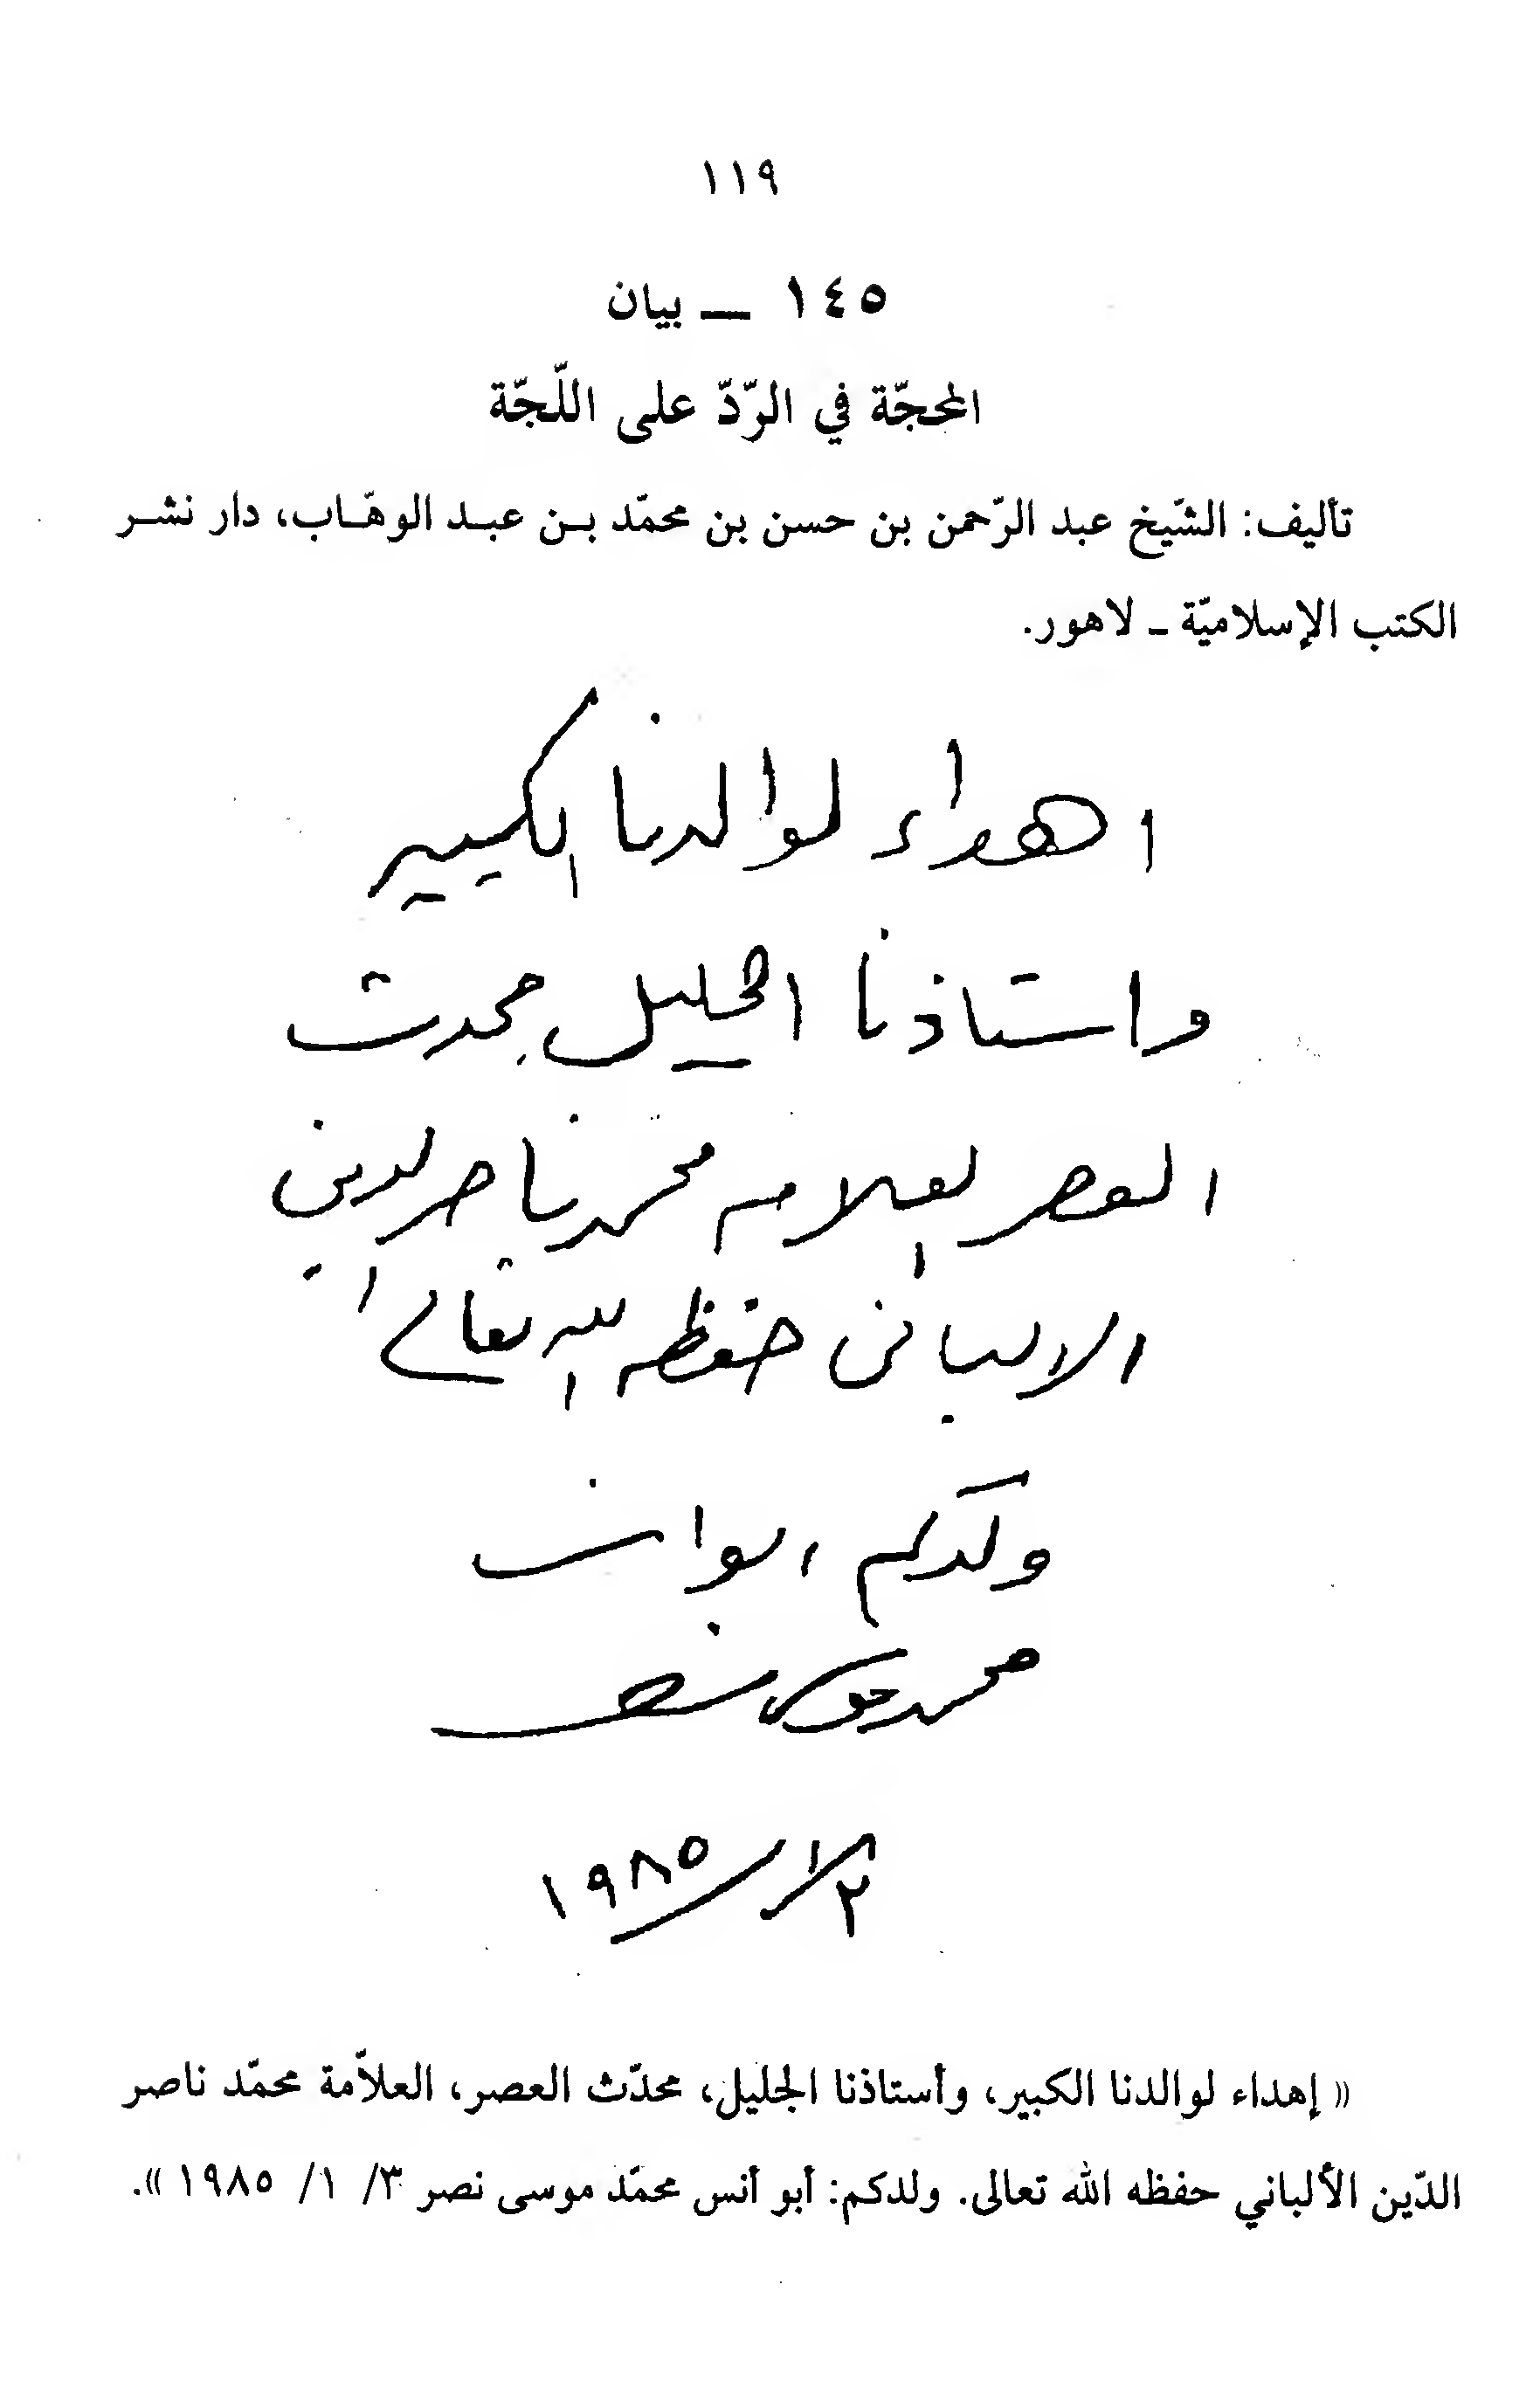 ١١٩
١٤٥ ــ بيان
المحجّة في الرّدّ على اللّجّة
تأليف: الشّيخ عبد الرّحمن بن حسن بن محمّد بـن عبـد الوهّـاب، دار نشـر
الكتب الإسلاميّة ـ لاهور.
اهداء لوالدنا الكبير
واستاذنا الجليل محدث
العصر العلامه محمد ناصر الدين
الالباني حفظه الله تعالى
ولدكم ابو انس
محمد موسى نصر
٣/١/١٩٨٥
« إهداء لوالدنا الكبير، وأستاذنا الجليل، محدّث العصر، العلاّمة محمّد ناصر
الدّين الألباني حفظه الله تعالى. ولدكم: أبو أنس محمّد موسى نصر ٣/ ١/ ١٩٨٥ ».